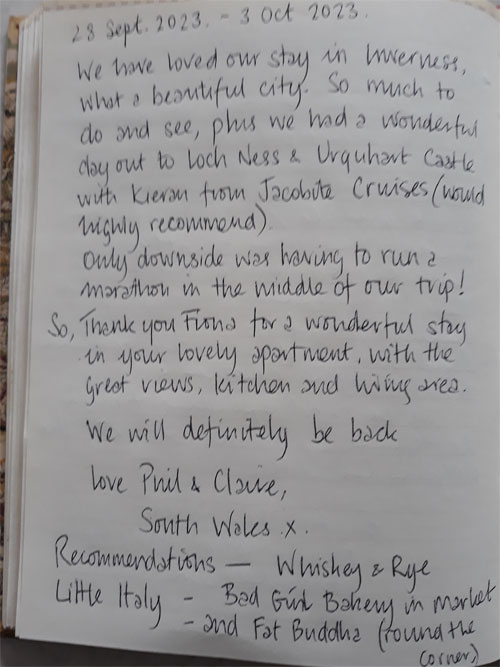 28 Sept. 2023. - 3 Oct 2023.
We have loved our stay in Inverness,
what a beautiful city. So much to
do and see, plus we had a wonderful
day out to Loch Ness & Urquhart Castle
with Kieran from Jacobite Cruises (would
highly recommend)
Only downside was having to run a
marathon in the middle of our trip!
So, Thank you Fiona for a wonderful stay
in your lovely apartment, with the
great views, kitchen and living area.
We will definitely be back
love Phil & Claire,
South Wales x.
Recommendations — Whiskey & Rye
Little Italy - Bad Girl Bakery in market
- and Fat Buddha (round the
corner)